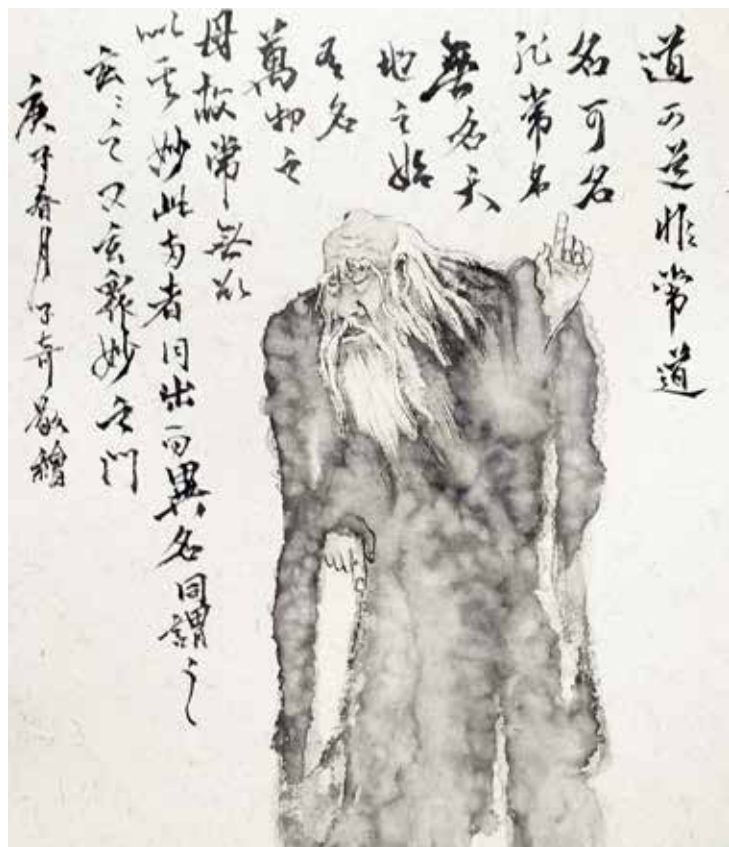 道可道非常道
名可名
非常名
無名天
地之始
有名
萬物之
母故常無欲
以觀妙此兩者同出而異名同謂之
玄玄之又玄眾妙之門
庚子春月子奇敬繪